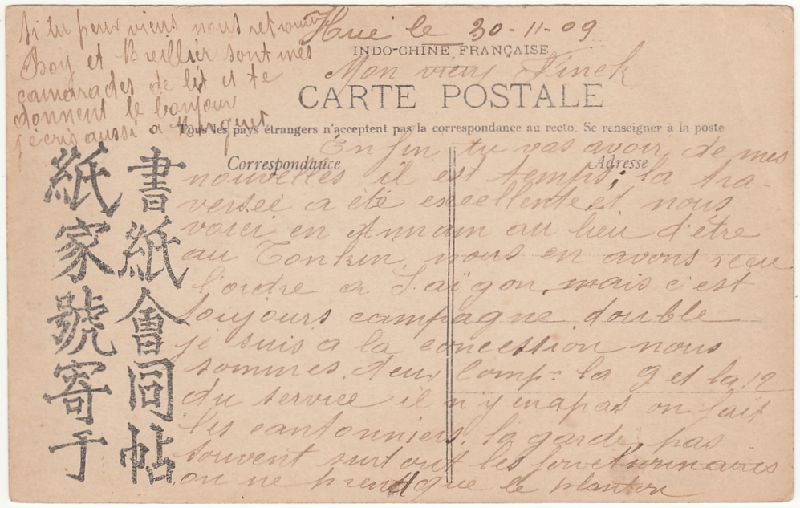 Hué le 30-11-09
INDO-CHINE FRANÇAISE
Mon vieux Finck
CARTE POSTALE
Tous les pays étrangers n'acceptent pas la correspondance au recto. Se renseigner à la poste
Correspondance
Adresse
Enfin tu vas avoir de mes
nouvelles il est temps, la tra-
versée a été excellente et nous
voici en Annam au lieu d'être
au Tonkin, nous en avons reçu
l'ordre a Saïgon, mais c'est
toujours campagne double
je suis a la concession nous
sommes deux Comp. la 9 et la 12
du service il n'y en a pas on fait
les cantonniers, la garde, pas
souvent surtout les
on ne prend que le planton
Si tu peux viens nous retrouver
Boy et Breillier sont mes
camarades de lit et te
donnent le bonjour
j'écris aussi a
書紙會同帖
紙家號寄于